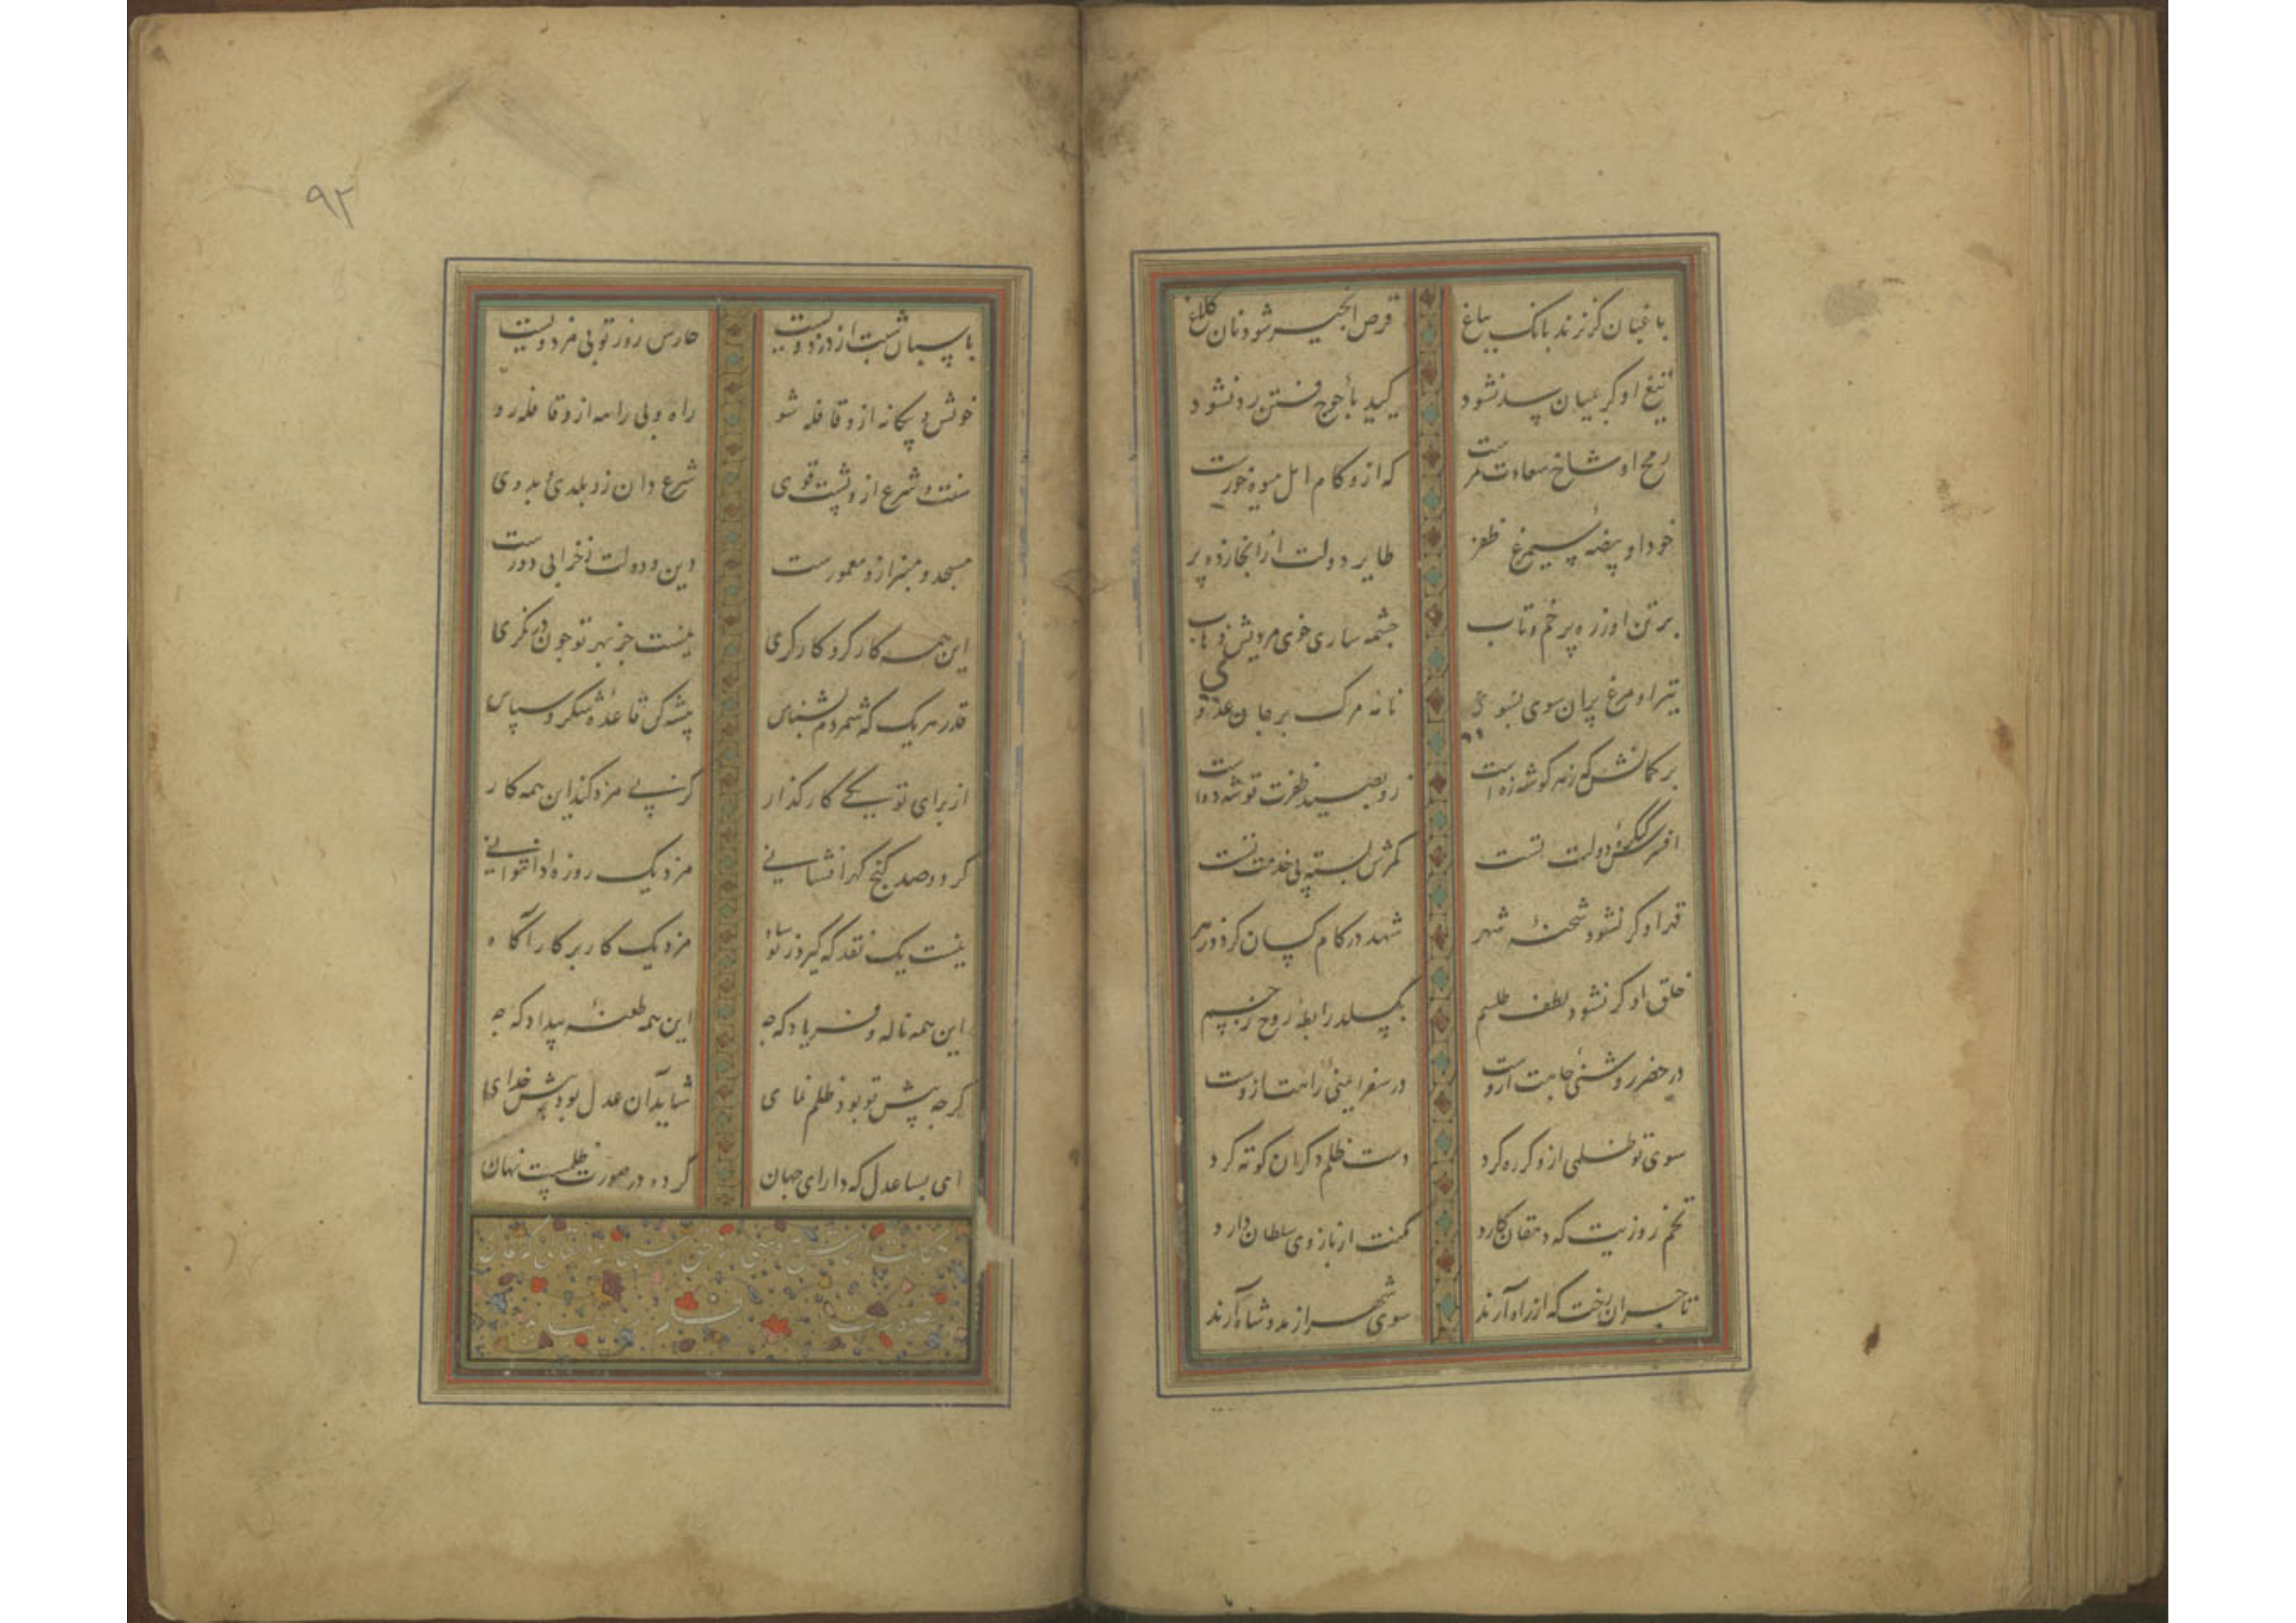 باغبان گر نزند بانک بباغ
قرص انجیر شود نان کلاغ
تیغ او گر بمیان سد نشود
کید یأجوج فتن رد نشود
رمح او شاخ سعادت ثمرست
که ازو کام امل میوه خورست
خود او بیضه سیمرغ ظفر
طایر دولت از انجا زده پر
بر تن او زره پر خم و تاب
چشمه ساری خوی مردیش
تیر او مرغ پران سوی بسوی
نامه مرک بر جان عدوی
بر کمانش که زهر گوشه زه است
ظفرت توشه ده است
افسرش کنگره دولت تست
کمرش بسته پی خدمت تست
قهر او گر نشود شحنه شهر
شهد در کام کسان کردد زهر
خلق او گر نشود لطف طلسم
بگسلد رابطه روح ز جسم
در حضر روشنی جاهت ازوست
در سفر ایمنی راهت ازوست
سوی تو ظلمی ازو گر ره کرد
دست ظلم دگران کوته کرد
تخم روزیت که دهقان کارد
مکنت از بازوی سلطان دارد
تاجران رخت که از راه آرند
سوی شهر از مدد شاه آرند
پاسبان شبت از دزد ویست
حارس روز تو بی مزد ویست
خویش و بیکانه ازو قافله شو
راه و بی راهه ازو قافله رو
سنت و شرع ازو پشت قوی
شرع دان زو بلدی و بدوی
مسجد و منبر ازو معمورست
دین و دولت ز خرابی دورست
این همه کارگر و کارگری
نیست جز بهر تو چون در نگری
قدر هر یک که شمردم بشناس
پیشه کن قاعده شکر و سپاس
از برای تو یکی کارگذار
گر نه پی مزد کند این همه کار
گر دو صد گنج گهر افشانی
مزد یک روزه او نتوانی
نیست یک نقد که گیرد ز تو شاه
مزد یک کار بر کار آگاه
این همه ناله و فریاد که چه
این همه طعنه بیداد که چه
گرچه پیش تو بود ظلم نمای
شاید آن عدل بود پیش خدای
ای بسا عدل که دارای جهان
گردد در صورت ظلمست نهان
۹۲